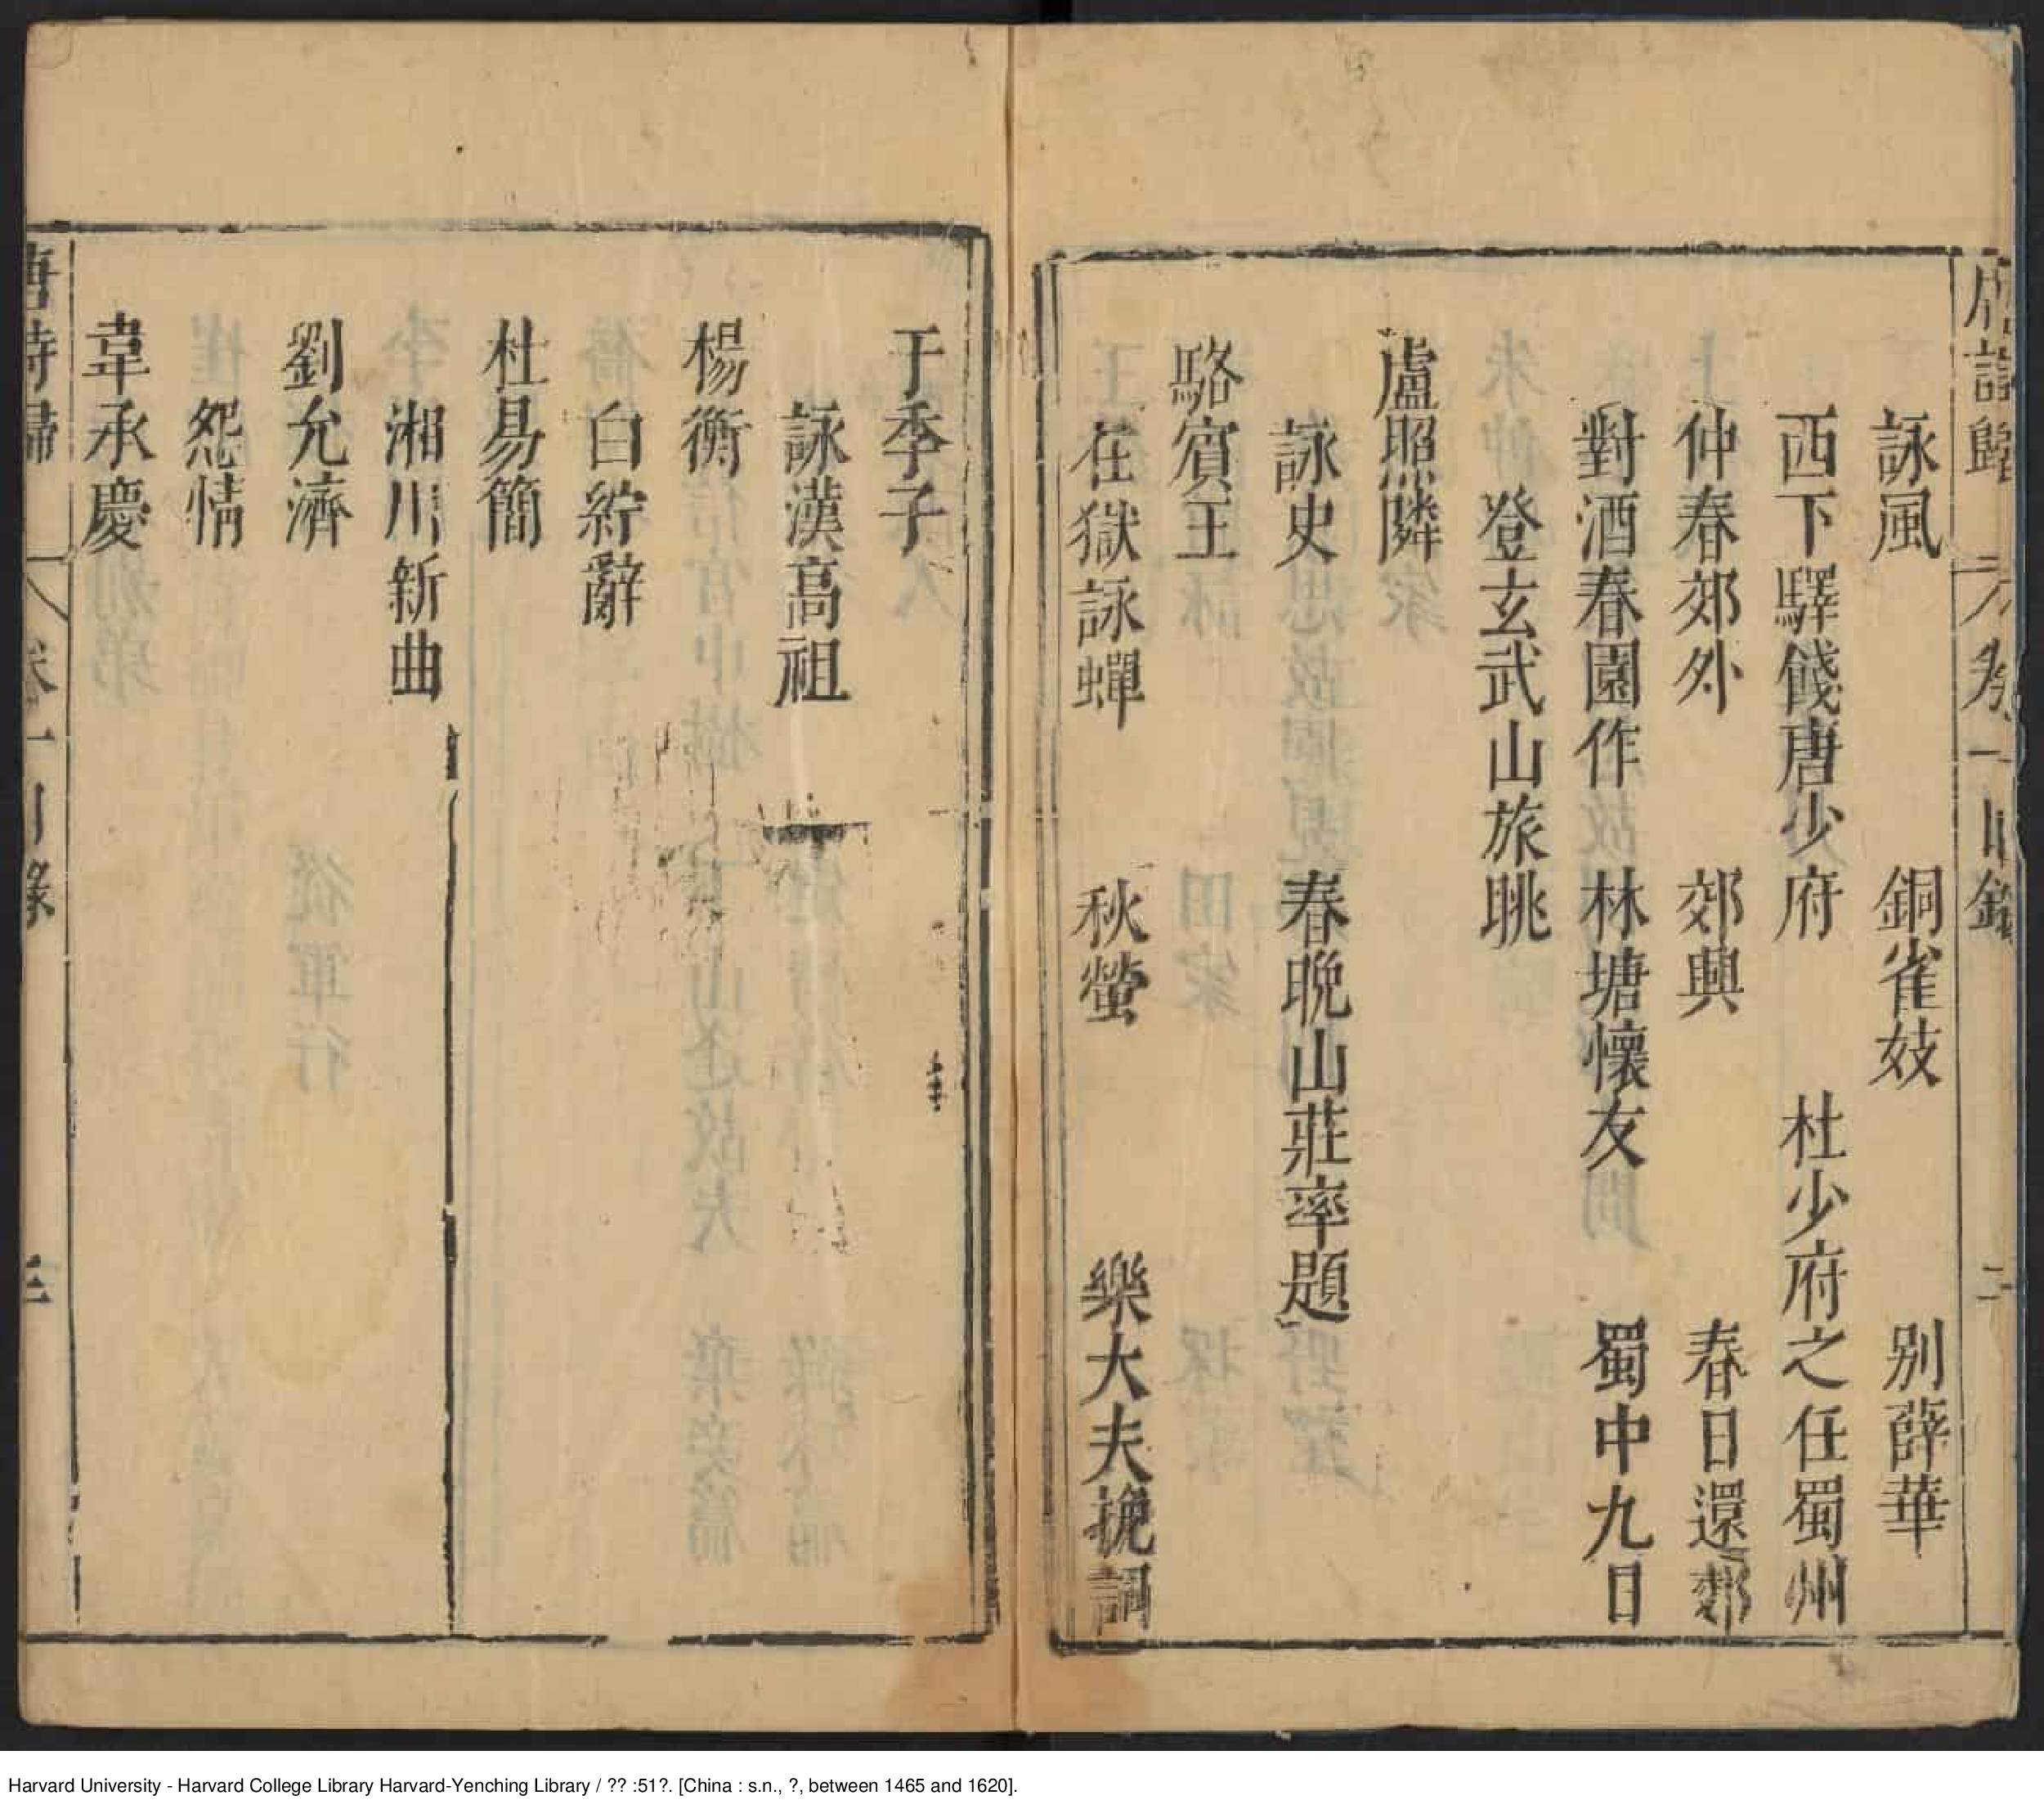 詠風　銅雀妓　别薛華
西下驛餞唐少府　杜少府之任蜀州
仲春郊外　郊興　春日還郊
對酒春園作　林塘懷友　蜀中九日
登玄武山旅眺
盧照隣
詠史　春晚山莊率題
駱賓王
在獄詠蟬　秋螢　樂大夫挽詞
于季子
詠漢高祖
楊衡
白紵辭
杜易簡
湘川新曲
劉允濟
怨情
韋承慶
唐詩歸　卷一目錄　三
Harvard University - Harvard College Library Harvard-Yenching Library / ?? :51?. [China : s.n., ?, between 1465 and 1620].